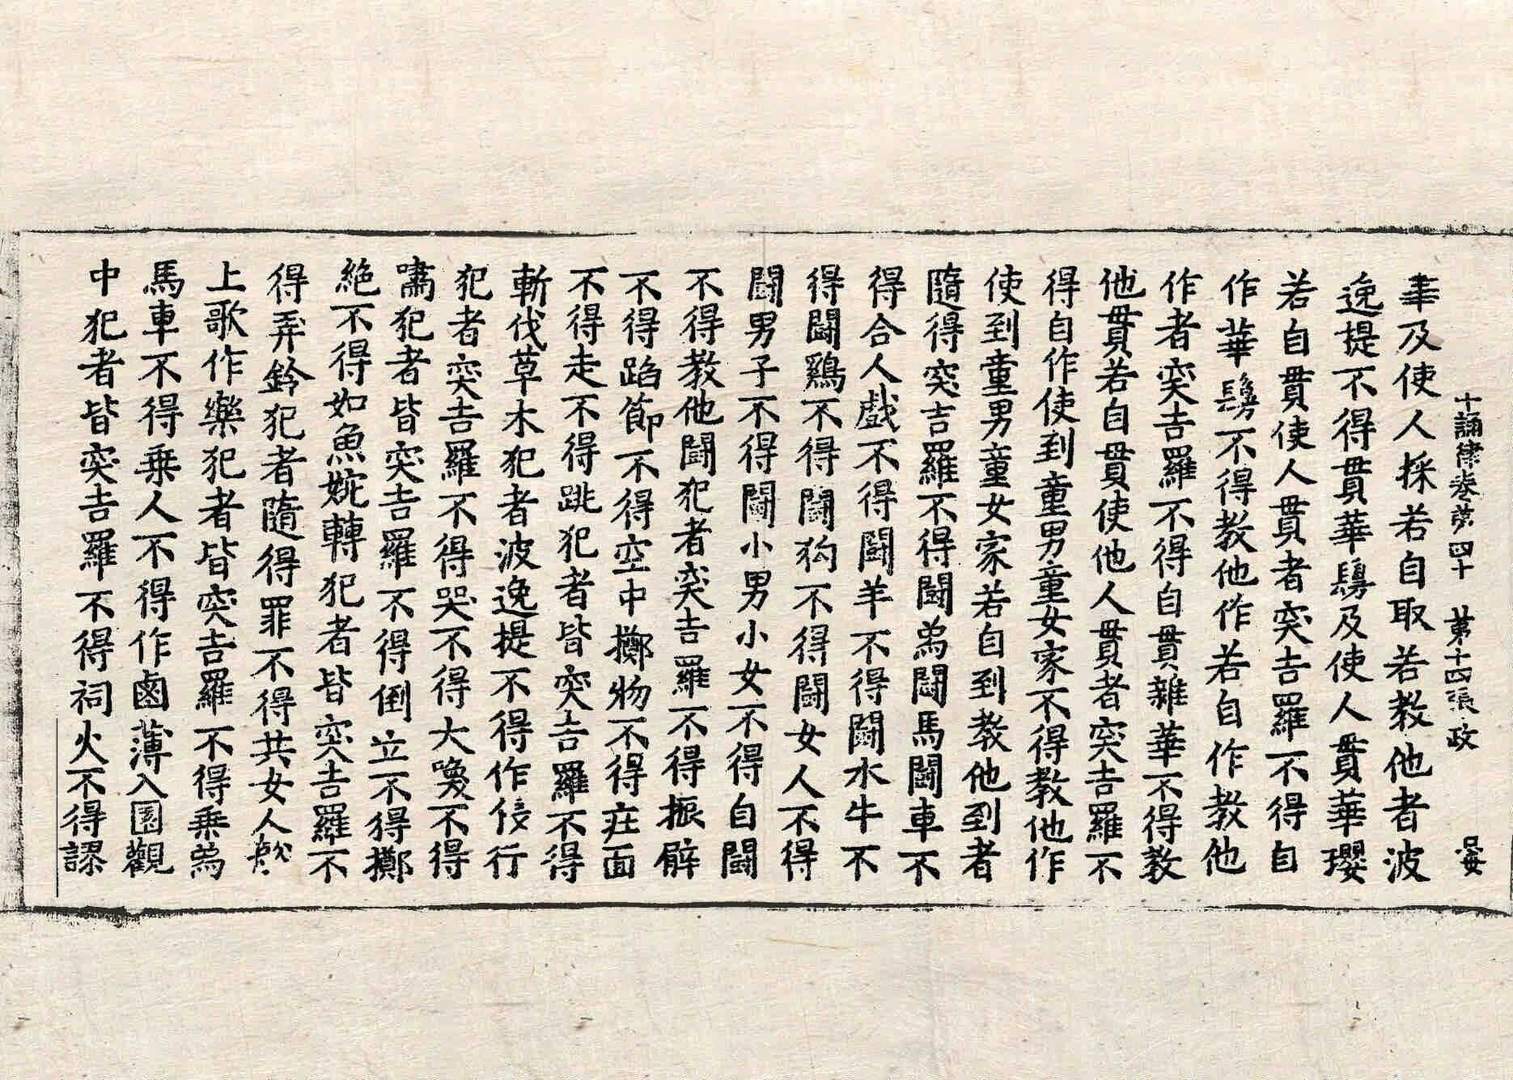 十誦律卷第四十 第十四張 政
華及使人採若自取若教他者波
逸提不得貫華鬘及使人貫華瓔
若自貫使人貫者突吉羅不得自
作華鬘不得教他作若自作教他
作者突吉羅不得自貫雜華不得教
他貫若自貫使他人貫者突吉羅不
得自作使到童男童女家不得教他作
使到童男童女家若自到教他到者
隨得突吉羅不得鬪為鬪馬鬪車不
得合人戲不得鬪羊不得鬪水牛不
得鬪鷄不得鬪狗不得鬪女人不得
鬪男子不得鬪小男小女不得自鬪
不得教他鬪犯者突吉羅不得振臂
不得蹈節不得空中擲物不得在面
不得走不得跳犯者皆突吉羅不得
斬伐草木犯者波逸提不得作伎行
犯者突吉羅不得哭不得大喚不得
嘯犯者皆突吉羅不得倒立不得擲
絕不得如魚婉轉犯者皆突吉羅不
得弄鈴犯者隨得罪不得共女人歡
上歌作樂犯者皆突吉羅不得乗為
馬車不得乗人不得作鹵薄入園觀
中犯者皆突吉羅不得祠火不得謬